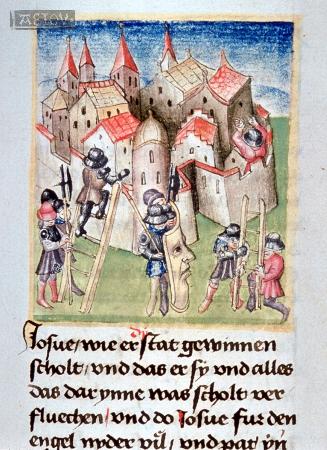 dy
Iosue / wie er stat gewinnen
scholt / vnd das er sy vnd alles
das dar ynne was scholt ver
fluechen / vnd do Iosue fur den
engel nyder vil / vnd pat yn